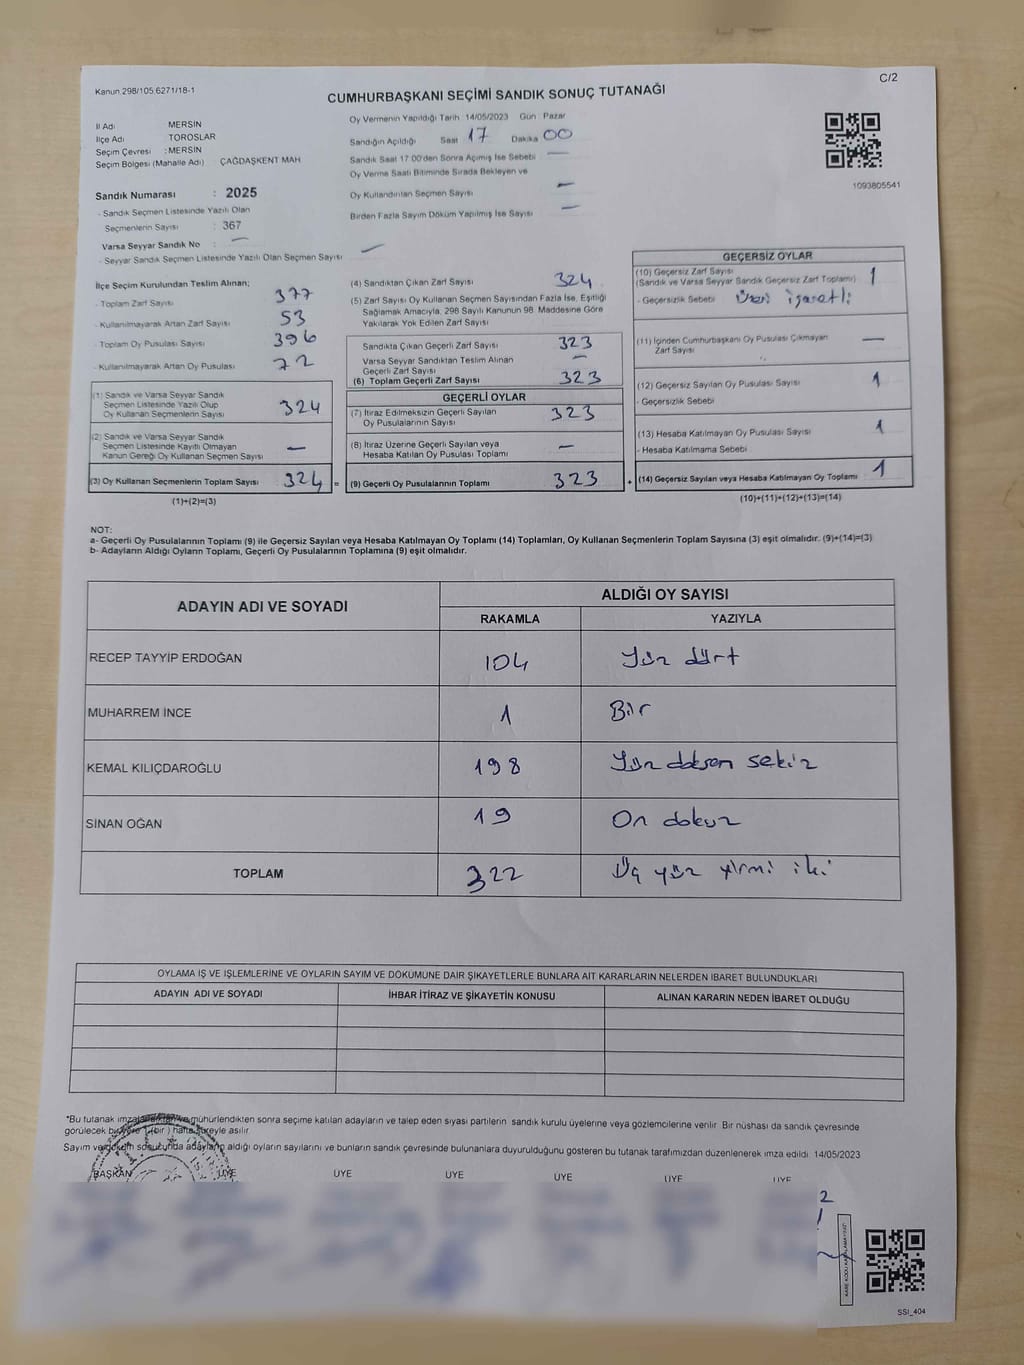 Kanun 298/105 6271/18-1
C/2
CUMHURBAŞKANI SEÇİMİ SANDIK SONUÇ TUTANAĞI
İl Adı MERSİN
İlçe Adı TOROSLAR
Seçim Çevresi : MERSİN
Seçim Bölgesi (Mahalle Adı) ÇAĞDAŞKENT MAH
Sandık Numarası : 2025
- Sandık Seçmen Listesinde Yazılı Olan
Seçmenlerin Sayısı : 367
Varsa Seyyar Sandık No : —
- Seyyar Sandık Seçmen Listesinde Yazılı Olan Seçmen Sayısı —
Oy Vermenin Yapıldığı Tarih 14/05/2023 Gün Pazar
Sandığın Açıldığı Saat 17 Dakika 00
Sandık Saat 17 00'den Sonra Açımış İse Sebebi —
Oy Verme Saati Bitiminde Sırada Bekleyen ve
Oy Kullandırılan Seçmen Sayısı —
Birden Fazla Sayım Döküm Yapılmış İse Sayısı —
1093805541
İlçe Seçim Kurulundan Teslim Alınan;
- Toplam Zarf Sayısı 377
- Kullanılmayarak Artan Zarf Sayısı 53
- Toplam Oy Pusulası Sayısı 396
- Kullanılmayarak Artan Oy Pusulası 72
(1) Sandık ve Varsa Seyyar Sandık
Seçmen Listesinde Yazılı Olup
Oy Kullanan Seçmenlerin Sayısı 324
(2) Sandık ve Varsa Seyyar Sandık
Seçmen Listesinde Kayıtlı Olmayan
Kanun Gereği Oy Kullanan Seçmen Sayısı —
(3) Oy Kullanan Seçmenlerin Toplam Sayısı 324 =
(1)+(2)=(3)
(4) Sandıktan Çıkan Zarf Sayısı 324
(5) Zarf Sayısı Oy Kullanan Seçmen Sayısından Fazla İse, Eşitliği
Sağlamak Amacıyla, 298 Sayılı Kanunun 98. Maddesine Göre
Yakılarak Yok Edilen Zarf Sayısı
Sandıkta Çıkan Geçerli Zarf Sayısı 323
Varsa Seyyar Sandıktan Teslim Alınan
Geçerli Zarf Sayısı —
(6) Toplam Geçerli Zarf Sayısı 323
GEÇERLİ OYLAR
(7) İtiraz Edilmeksizin Geçerli Sayılan
Oy Pusulalarının Sayısı 323
(8) İtiraz Üzerine Geçerli Sayılan veya
Hesaba Katılan Oy Pusulası Toplamı —
(9) Geçerli Oy Pusulalarının Toplamı 323 +
GEÇERSİZ OYLAR
(10) Geçersiz Zarf Sayısı
(Sandık ve Varsa Seyyar Sandık Geçersiz Zarf Toplamı) 1
- Geçersizlik Sebebi Üzeri işaretli
(11) İçinden Cumhurbaşkanı Oy Pusulası Çıkmayan
Zarf Sayısı —
(12) Geçersiz Sayılan Oy Pusulası Sayısı 1
- Geçersizlik Sebebi
(13) Hesaba Katılmayan Oy Pusulası Sayısı 1
- Hesaba Katılmama Sebebi
(14) Geçersiz Sayılan veya Hesaba Katılmayan Oy Toplamı 1
(10)+(11)+(12)+(13)=(14)
NOT:
a- Geçerli Oy Pusulalarının Toplamı (9) ile Geçersiz Sayılan veya Hesaba Katılmayan Oy Toplamı (14) Toplamları, Oy Kullanan Seçmenlerin Toplam Sayısına (3) eşit olmalıdır. (9)+(14)=(3)
b- Adayların Aldığı Oyların Toplamı, Geçerli Oy Pusulalarının Toplamına (9) eşit olmalıdır.
ADAYIN ADI VE SOYADI ALDIĞI OY SAYISI
RAKAMLA YAZIYLA
RECEP TAYYİP ERDOĞAN 104 Yüz dört
MUHARREM İNCE 1 Bir
KEMAL KILIÇDAROĞLU 198 Yüz doksan sekiz
SİNAN OĞAN 19 On dokuz
TOPLAM 322 Üç yüz yirmi iki
OYLAMA İŞ VE İŞLEMLERİNE VE OYLARIN SAYIM VE DÖKÜMÜNE DAİR ŞİKAYETLERLE BUNLARA AİT KARARLARIN NELERDEN İBARET BULUNDUKLARI
ADAYIN ADI VE SOYADI İHBAR İTİRAZ VE ŞİKAYETİN KONUSU ALINAN KARARIN NEDEN İBARET OLDUĞU
*Bu tutanak imzalanıp ve mühürlendikten sonra seçime katılan adayların ve talep eden siyasi partilerin sandık kurulu üyelerine veya gözlemcilerine verilir Bir nüshası da sandık çevresinde
görülecek bir yere 1 (bir) hafta süreyle asılır
Sayım ve döküm sonucunda adayların aldığı oyların sayılarını ve bunların sandık çevresinde bulunanlara duyurulduğunu gösteren bu tutanak tarafımızdan düzenlenerek imza edildi. 14/05/2023
BAŞKAN ÜYE ÜYE ÜYE ÜYE ÜYE ÜYE
2
SSİ_404